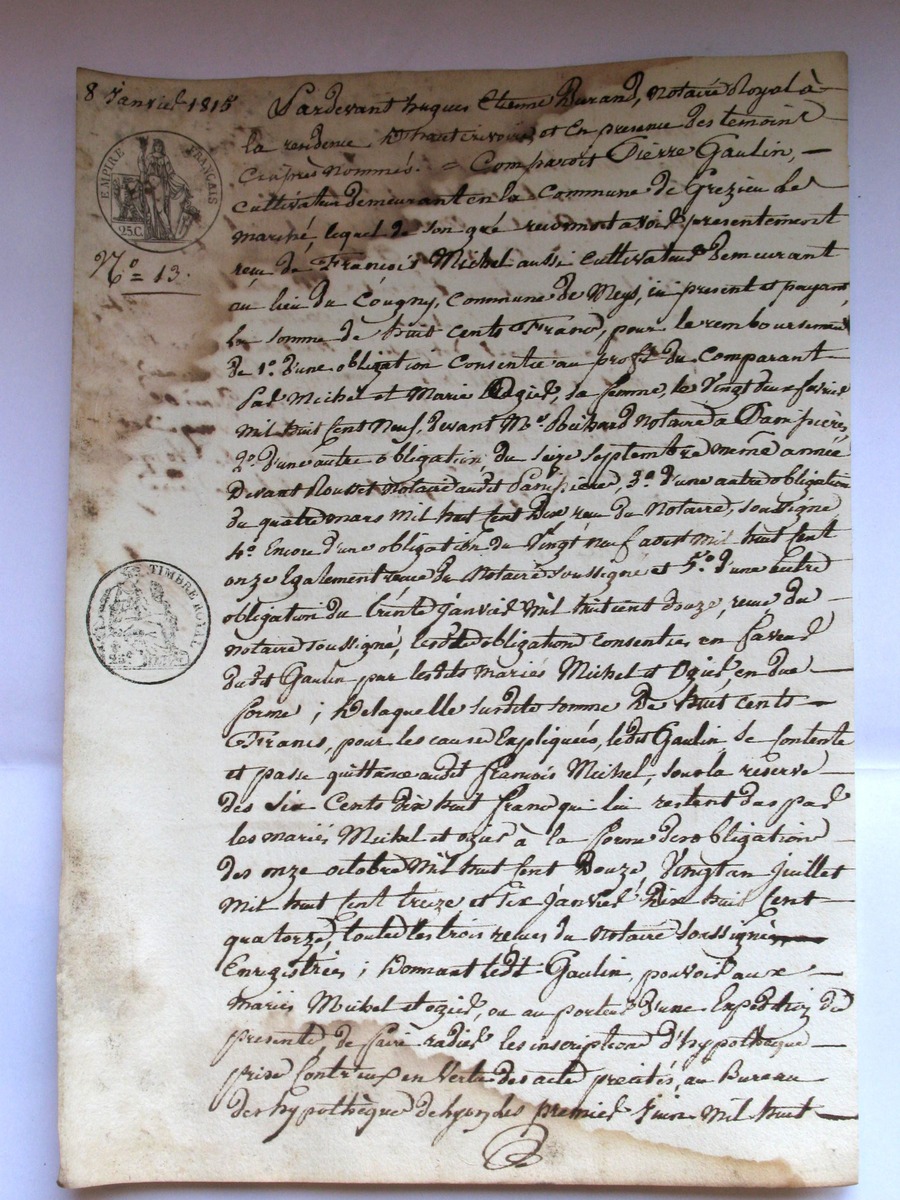 8 Janvier 1815
EMPIRE FRANÇAIS
25C.
N.o = 13.
TIMBRE ROYAL
Pardevant hugues Etienne Durand, Notaire Royal à
la residence D'hauterivoire, et En presence des temoins
Cy après Nommés. = Comparoit Pierre Gaulin,
cultivateur demeurant en la Commune de Grezieu le
marché, lequel de son gré reconnoit avoir presentement
reçu de François Michel aussi cultivateur demeurant
au lieu du Cougny, commune de Meys, ici present et payant,
la somme de huit cents Francs, pour le remboursement
de 1.o d'une obligation Consentie au profit du Comparant
par Michel et Marie Ogier, sa femme, le Vingt deux fevrier
mil huit Cent Neuf, devant M.e Notaire a
2.o d'une autre obligation, du seize Septembre même année
devant Rousset Notaire audit 3.o d'une autre obligation
du quatre mars mil huit Cent Dix, reçu du Notaire, soussigné
4.o Encore d'une obligation du Vingt neuf aout Mil huit Cent
onze Egalement reçue du Notaire soussigné et 5.o d'une autre
obligation du trente Janvier Mil huit cent douze, reçue du
notaire soussigné, obligations consenties en faveur
dudit Gaulin par lesdits mariés Michel et Ogier, en due
forme ; De laquelle surdite somme De huit cents
Francs, pour les cause Expliquées, ledit Gaulin, se Contente
et passe quittance audit françois Michel, sous la reserve
des Six Cents dix huit franc qui lui restent dus par
les mariés Michel et ogier à la forme d'obligation
des onze octobre Mil huit Cent Douze, Vingt un Juillet
Mil huit Cent treize et Six Janvier Dix huit Cent
quatorze, toutes les trois reçues du notaire Soussigné
Enregistrées ; Donnant ledt. Gaulin, pouvoir aux
mariés Michel et ogier, ou au porteur d'une Expedition de
presente, de faire radier les inscriptions d'hypothèque
prise Contr'eux en Vertu des acte precités, au Bureau
des hypothèque de Lyon, les premier Juin Mil huit